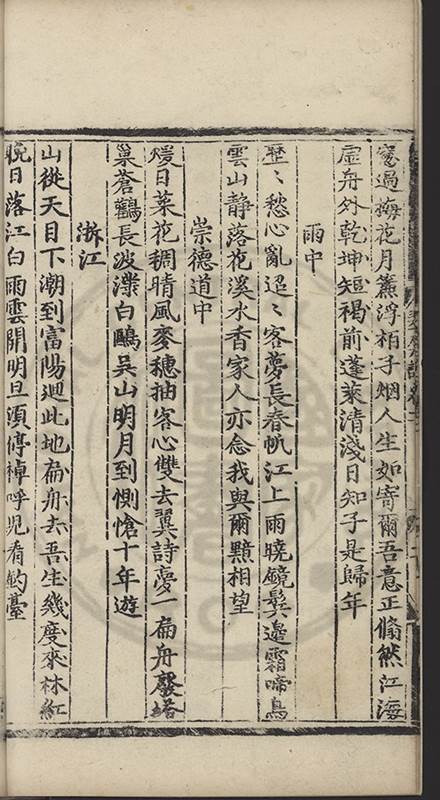 窓過梅花月簾浮柏子烟人生如寄爾吾意正翛然江海
虚舟外乾坤短褐前蓬萊清淺日知子是歸年
雨中
歴〻愁心亂迢〻客夢長春帆江上雨曉鏡鬂邊霜啼鳥
雲山静落花溪水香家人亦念我與爾黯相望
崇德道中
煖日菜花稠晴風麥穗抽客心雙去翼詩夢一扁舟廢塔
巢蒼鸛長波漾白鷗吳山明月到惻愴十年遊
浙江
山從天目下潮到富陽迴此地扁舟去吾生幾度來林紅
晩日落江白雨雲開明旦須停棹呼児看釣臺